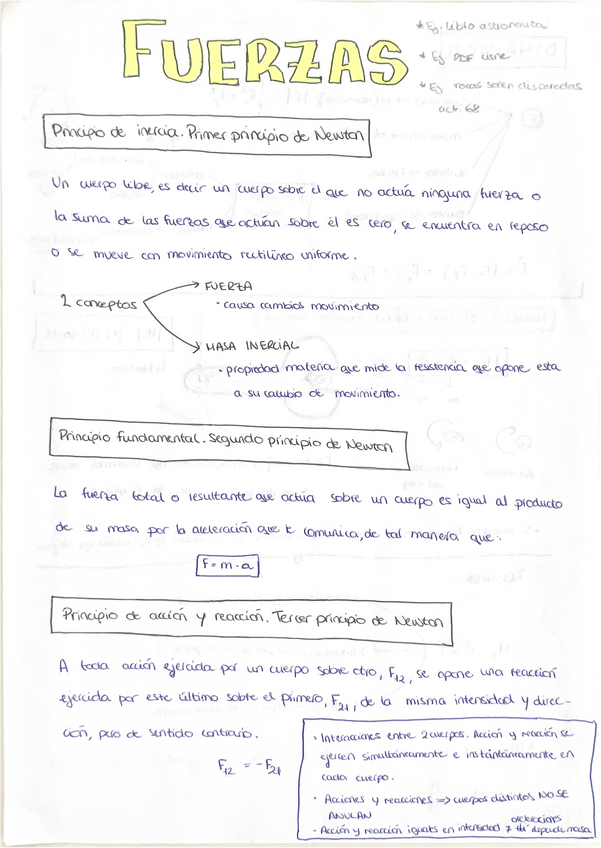 FUERZAS
* Ej. libro astronauta
* Ej PDF cisne
* Ej rocas salen disparadas
act. 68
Principio de inercia. Primer principio de Newton
Un cuerpo libre, es decir un cuerpo sobre el que no actúa ninguna fuerza o
la suma de las fuerzas que actúan sobre él es cero, se encuentra en reposo
o se mueve con movimiento rectilíneo uniforme.
2 conceptos
FUERZA
· causa cambios movimiento
MASA INERCIAL
· propiedad materia que mide la resistencia que opone esta
a su cambio de movimiento.
Principio fundamental. Segundo principio de Newton
La fuerza total o resultante que actúa sobre un cuerpo es igual al producto
de su masa por la aceleración que le comunica, de tal manera que:
F = m · a
Principio de acción y reacción. Tercer principio de Newton
A toda acción ejercida por un cuerpo sobre otro, F₁₂, se opone una reacción
ejercida por este último sobre el primero, F₂₁, de la misma intensidad y direc-
ción, pero de sentido contrario.
F₁₂ = -F₂₁
· Interacciones entre 2 cuerpos. Acción y reacción se
ejercen simultáneamente e instántáneamente en
cada cuerpo.
· Acciones y reacciones => cuerpos distintos NO SE
ANULAN
aceleraciones
· Acción y reacción iguales en intensidad ≠ depende masa